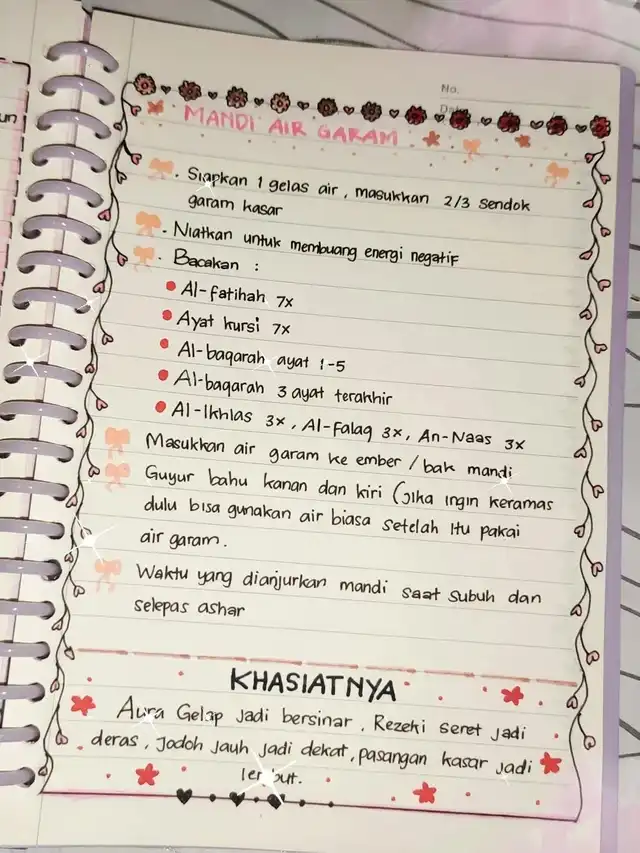 un
No.
MANDI AIR GARAM
Siapkan 1 gelas air, masukkan 2/3 sendok
garam kasar
Niatkan untuk membuang energi negatif
Bacakan :
Al-fatihah 7x
Ayat kursi 7x
Al-baqarah ayat 1-5
Al-baqarah 3 ayat terahhir
Al-Ikhlas 3x, Al-falaq 3x, An-Naas 3x
Masukkan air garam ke ember / bak mandi
Guyur bahu kanan dan kiri (jika ingin keramas
dulu bisa gunakan air biasa setelah itu pakai
air garam.
Waktu yang dianjurkan mandi saat subuh dan
selepas ashar
KHASIATNYA
Aura Gelap jadi bersinar, Rezeki seret jadi
deras, Jodoh jauh jadi dekat, pasangan kasar jadi